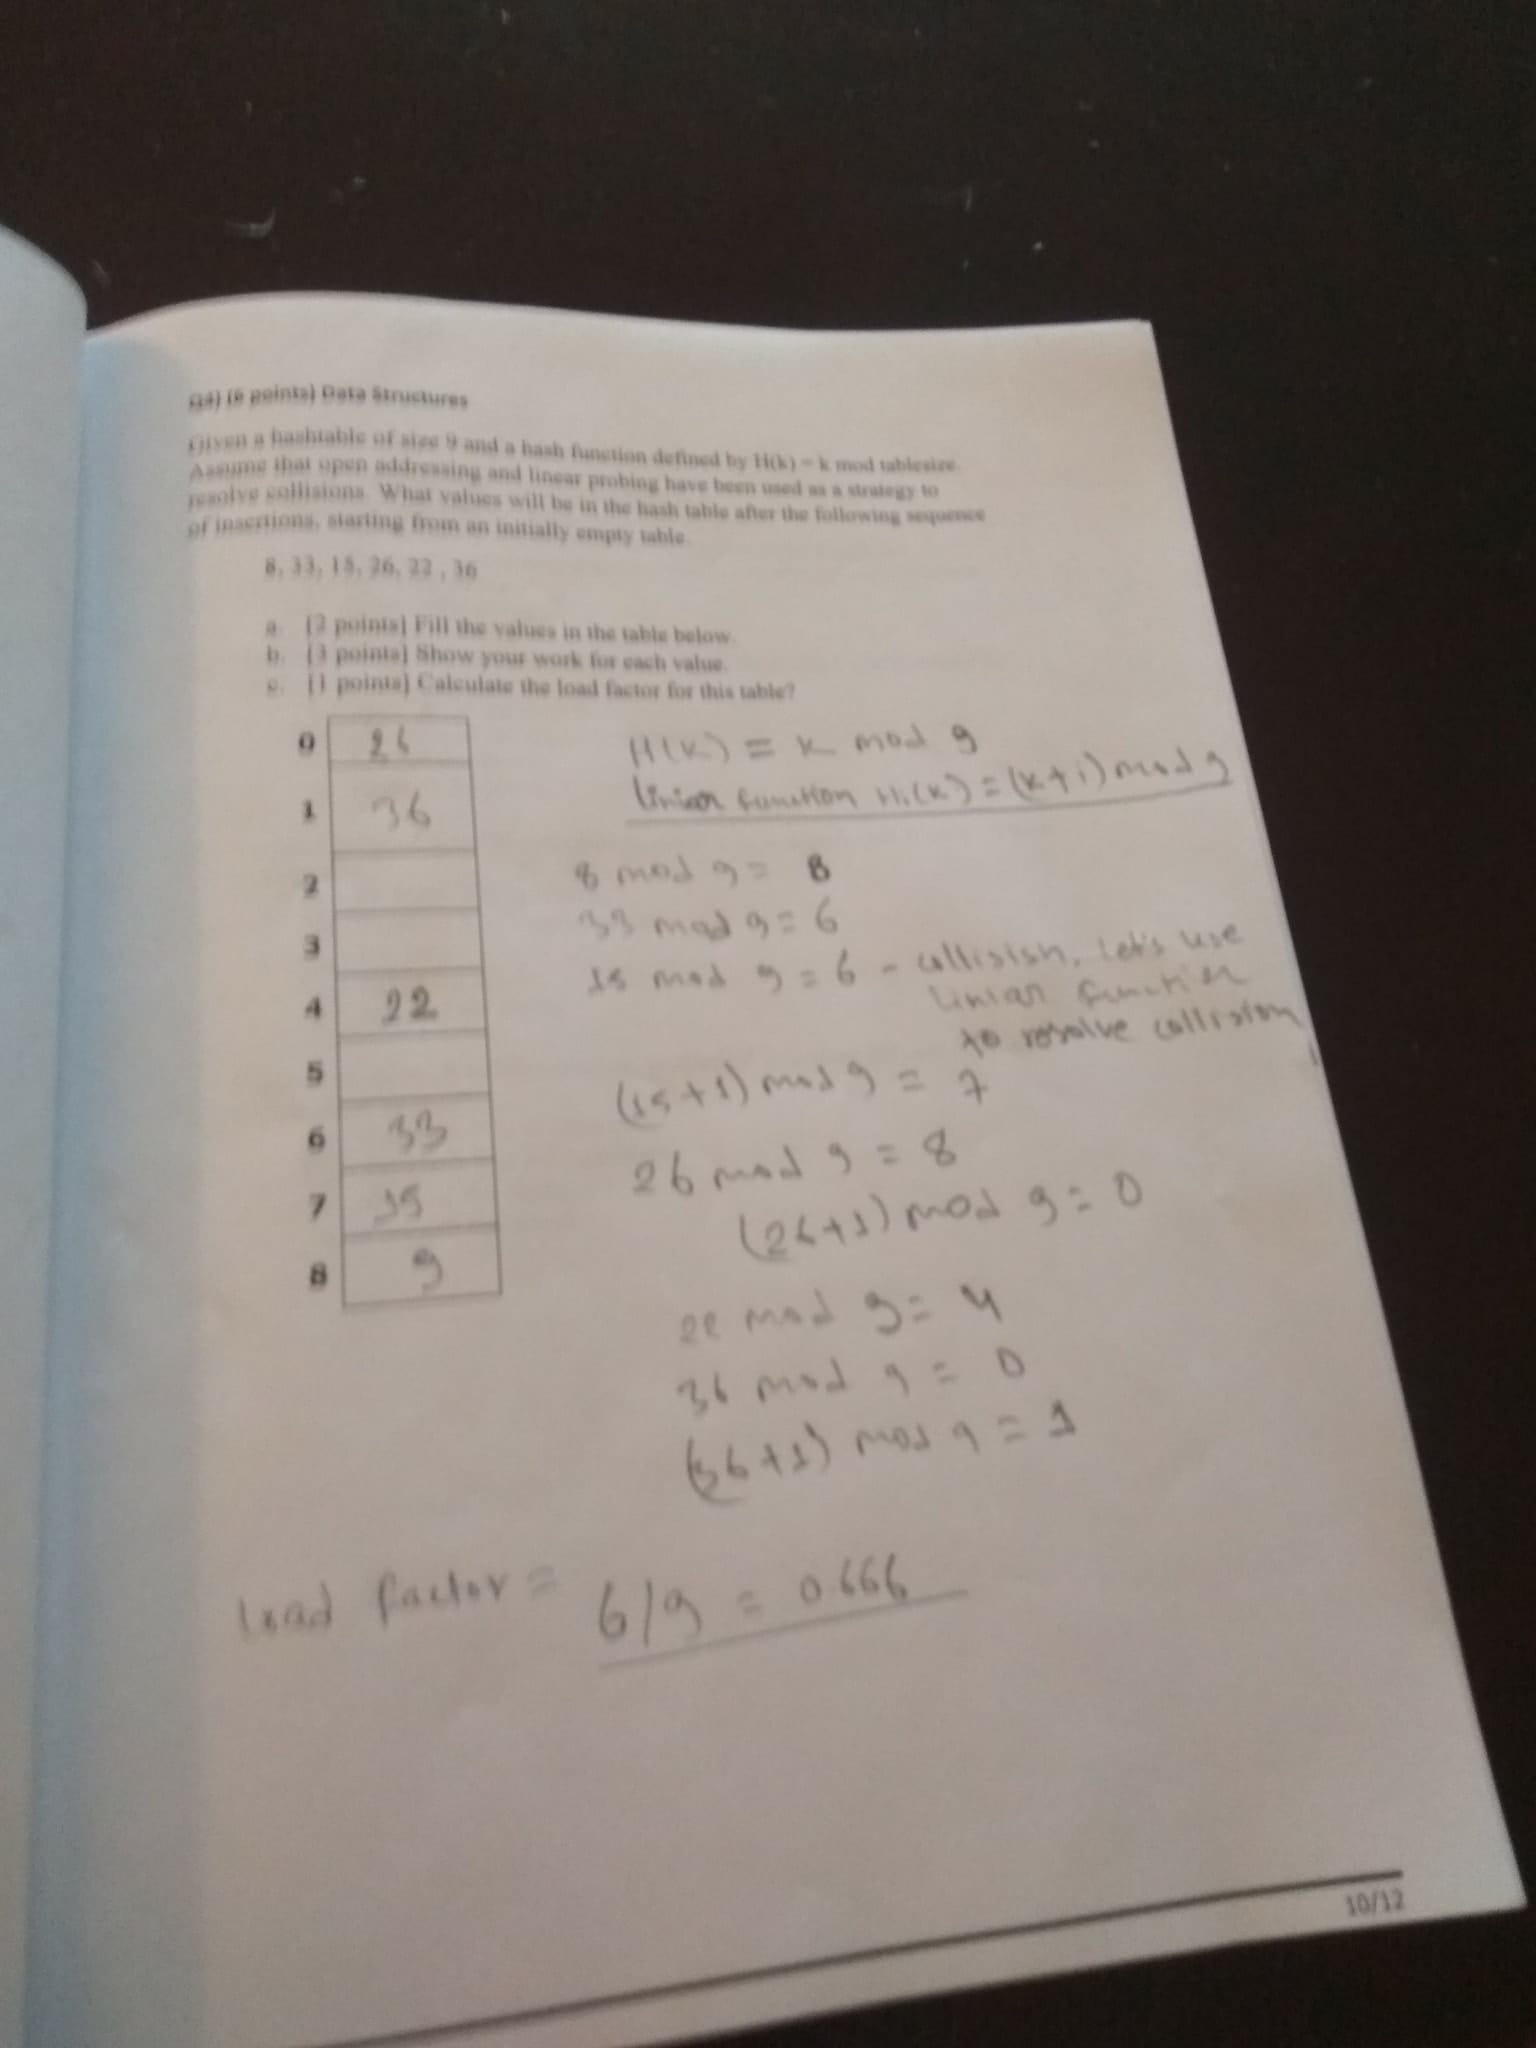 Q3) (6 points) Data Structures
Given a hashtable of size 9 and a hash function defined by H(k) = k mod tablesize.
Assume that open addressing and linear probing have been used as a strategy to
resolve collisions. What values will be in the hash table after the following sequence
of insertions, starting from an initially empty table.
8, 33, 15, 26, 22 , 36
a. [2 points] Fill the values in the table below.
b. [3 points] Show your work for each value.
c. [1 points] Calculate the load factor for this table?
0 26
1 36
2
3
4 22
5
6 33
7 15
8 9
H(K) = K mod 9
linian function Hi(K) = (K+i) mod 9
8 mod 9 = 8
33 mod 9 = 6
15 mod 9 = 6 - collision, let's use
linian function
to resolve collision
(15+1) mod 9 = 7
26 mod 9 = 8
(26+1) mod 9 = 0
22 mod 9 = 4
36 mod 9 = 0
(36+1) mod 9 = 1
load factor = 6/9 = 0.666
10/12